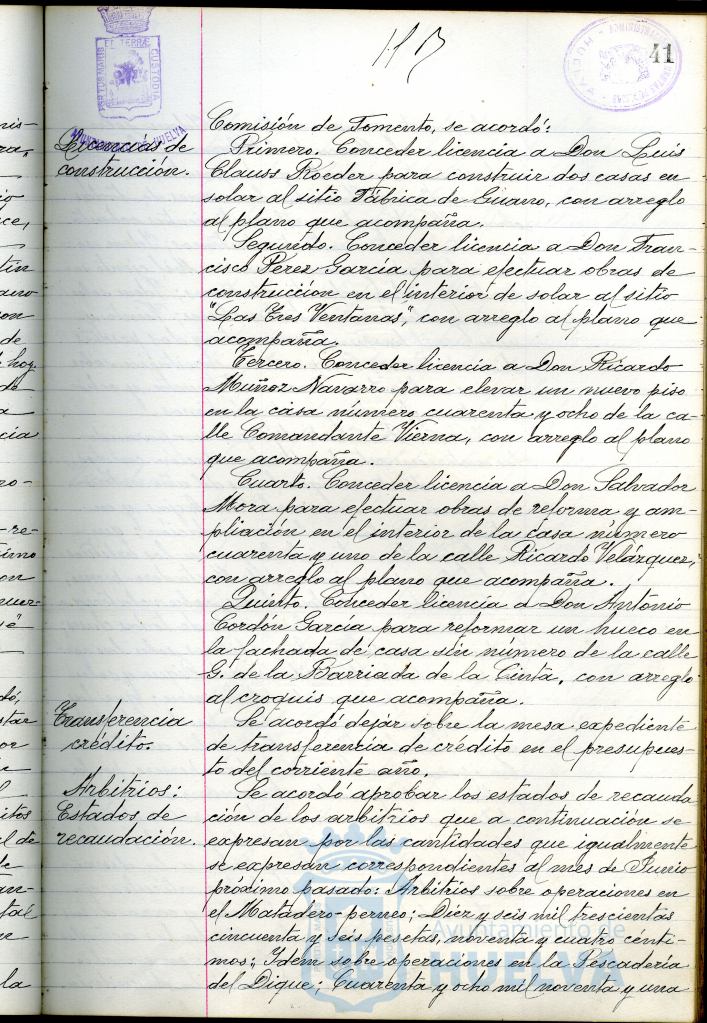 41
PORTUS MARIS ET TERRÆ CUSTODIA
AYUNTAMIENTO HUELVA
Licencias de
construcción.
Comisión de Fomento, se acordó:
Primero. Conceder licencia a Don Luis
Clauss Roeder para construir dos casas en
solar al sitio Fábrica de Guano, con arreglo
al plano que acompaña.
Segundo. Conceder licencia a Don Fran-
cisco Pérez García para efectuar obras de
construcción en el interior de solar al sitio
"Las Tres Ventanas", con arreglo al plano que
acompaña.
Tercero. Conceder licencia a Don Ricardo
Muñoz Navarro para elevar un nuevo piso
en la casa número cuarenta y ocho de la ca-
lle Comandante Vierna, con arreglo al plano
que acompaña.
Cuarto. Conceder licencia a Don Salvador
Mora para efectuar obras de reforma y am-
pliación en el interior de la casa número
cuarenta y uno de la calle Ricardo Velázquez,
con arreglo al plano que acompaña.
Quinto. Conceder licencia a Don Antonio
Cordón García para reformar un hueco en
la fachada de casa sin número de la calle
G. de la Barriada de la Cinta, con arreglo
al croquis que acompaña.
Transferencia
crédito.
Se acordó dejar sobre la mesa expediente
de transferencia de crédito en el presupues-
to del corriente año.
Arbitrios:
Estados de
recaudación.
Se acordó aprobar los estados de recauda
ción de los arbitrios que a continuación se
expresan por las cantidades que igualmente
se expresan correspondientes al mes de Junio
próximo pasado: Arbitrios sobre operaciones en
el Matadero-perneo; Diez y seis mil trescientas
cincuenta y seis pesetas, noventa y cuatro cénti-
mos; Ydem sobre operaciones en la Pescadería
del Dique; Cuarenta y ocho mil noventa y una
Ayuntamiento de
HUELVA